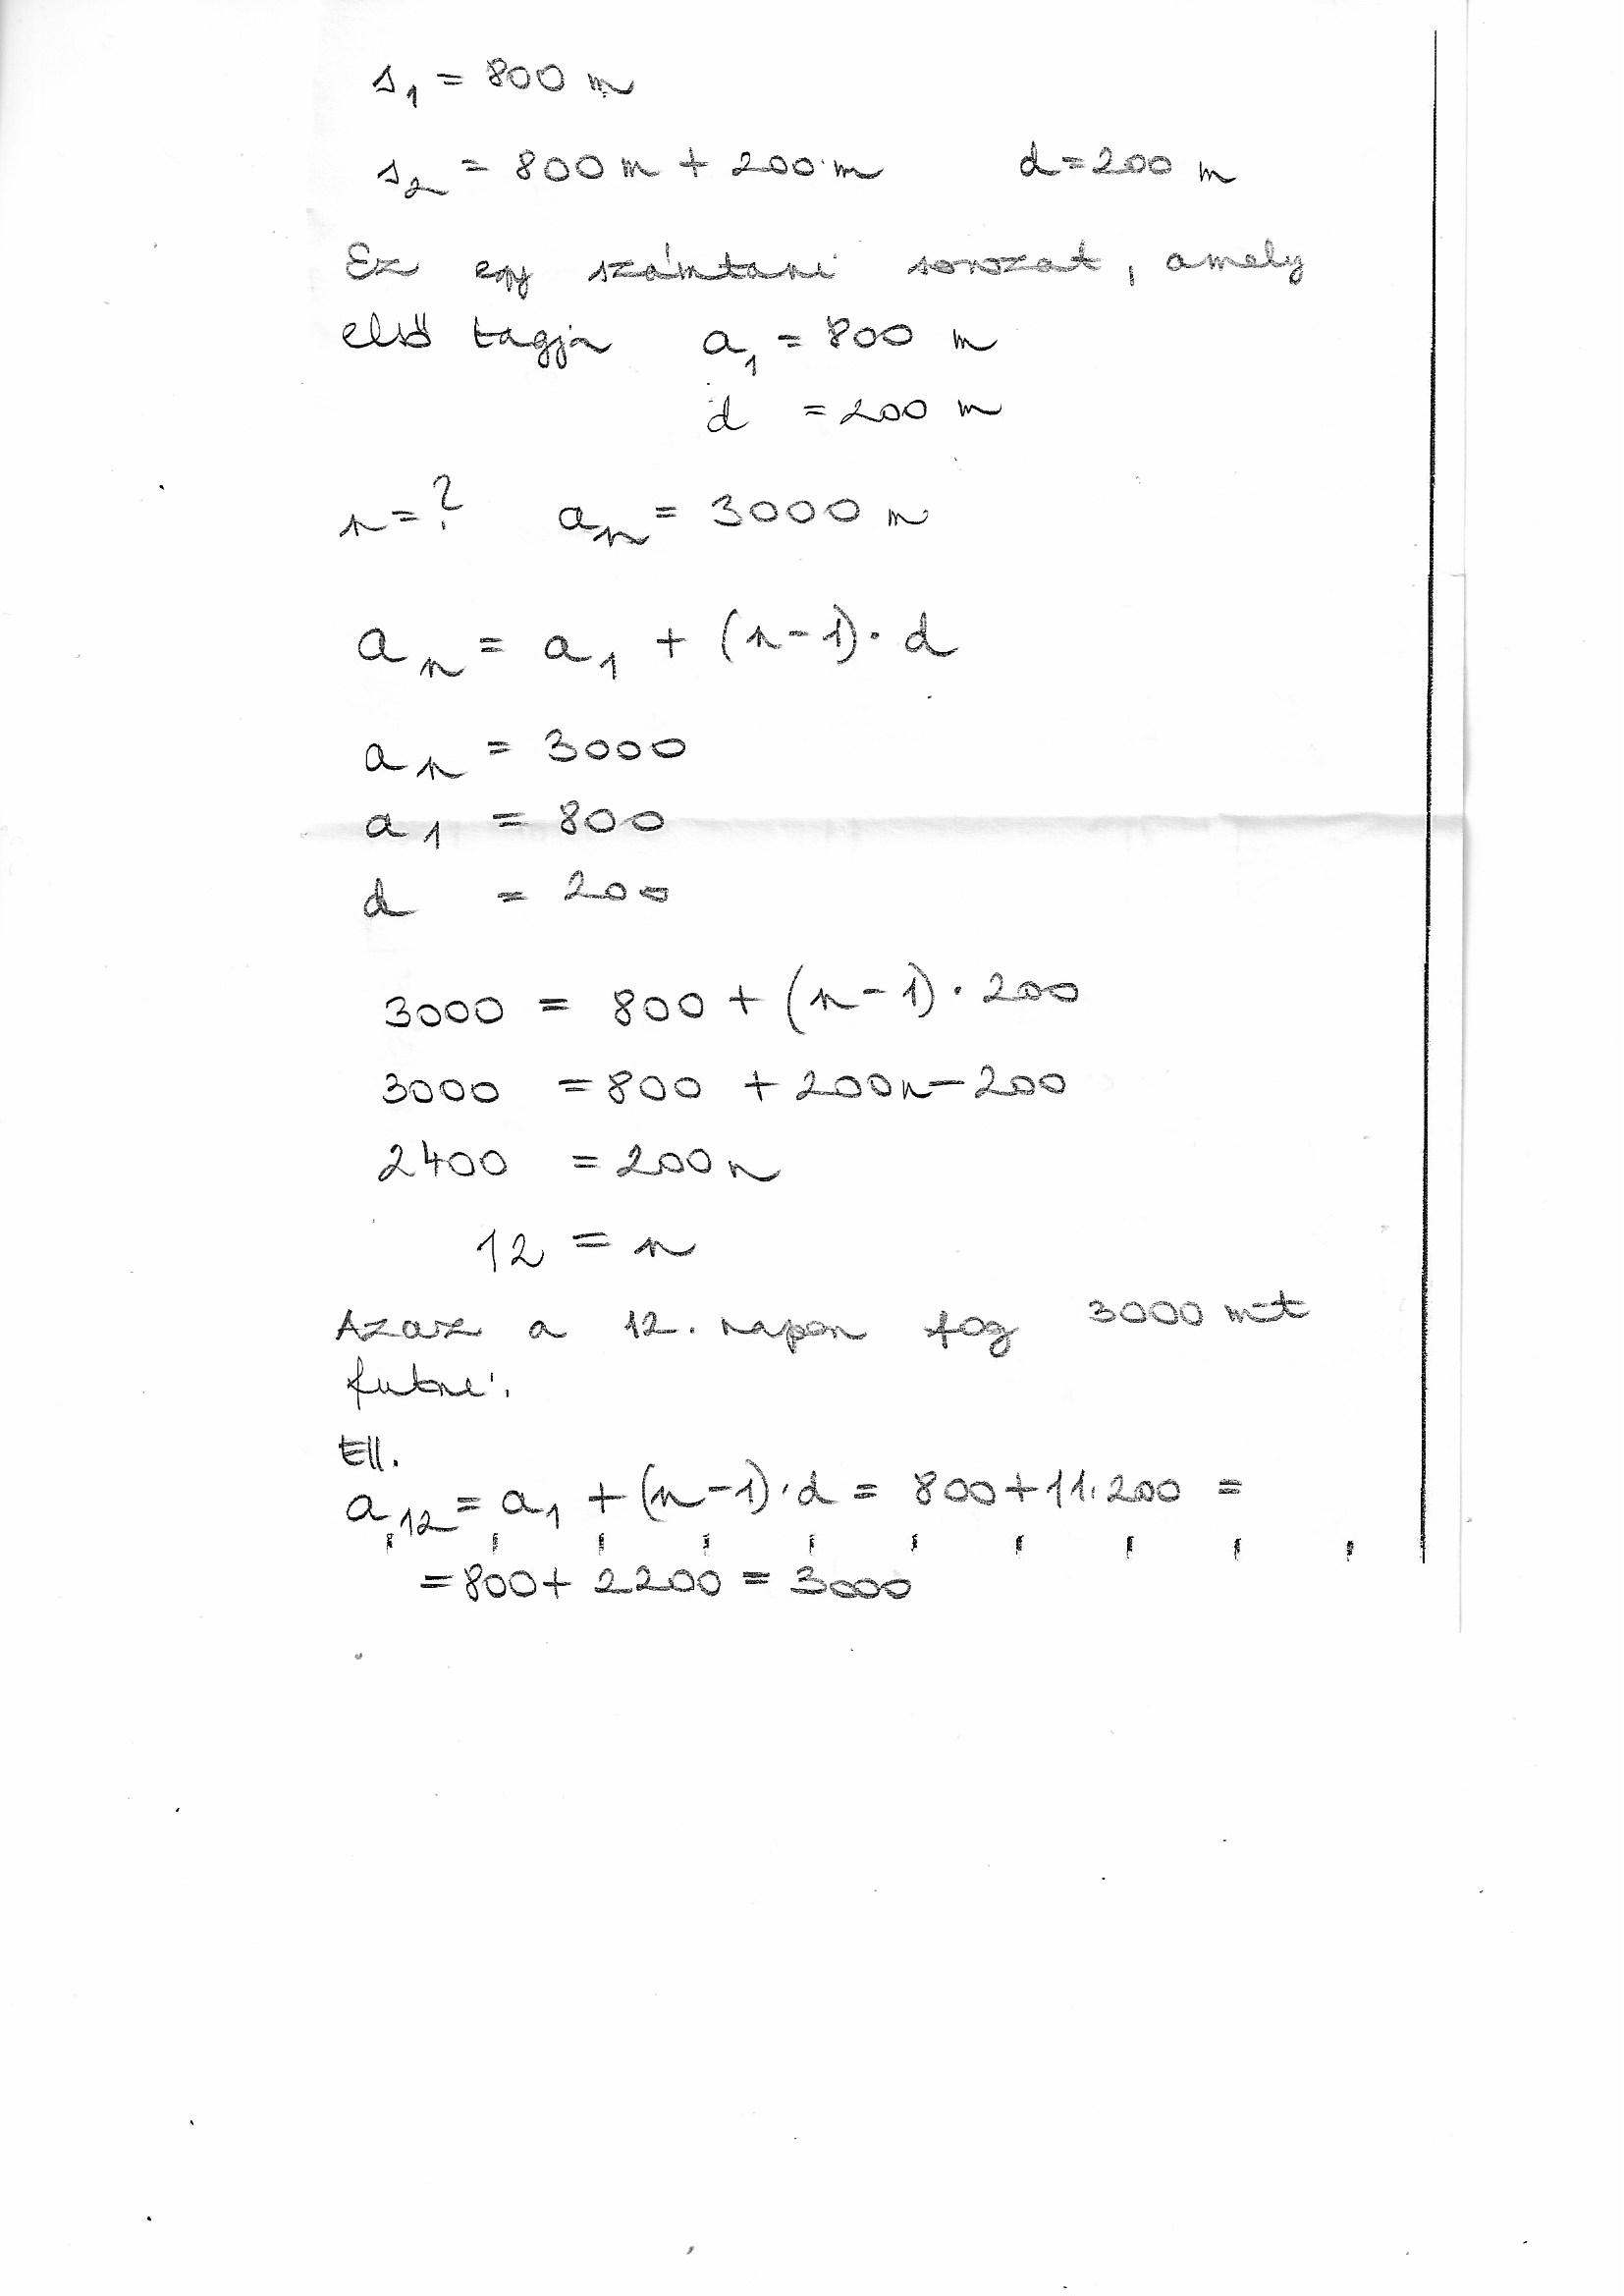 s₁ = 800 m
s₂ = 800 m + 200 m d = 200 m
Ez egy számtani sorozat, amely
első tagja a₁ = 800 m
d = 200 m
n = ? aₙ = 3000 m
aₙ = a₁ + (n-1)· d
aₙ = 3000
a₁ = 800
d = 200
3000 = 800 + (n-1)· 200
3000 = 800 + 200n - 200
2400 = 200n
12 = n
Azaz a 12. napon fog 3000 m-t
futni.
Ell.
a₁₂ = a₁ + (n-1)·d = 800+11·200 =
= 800+ 2200 = 3000